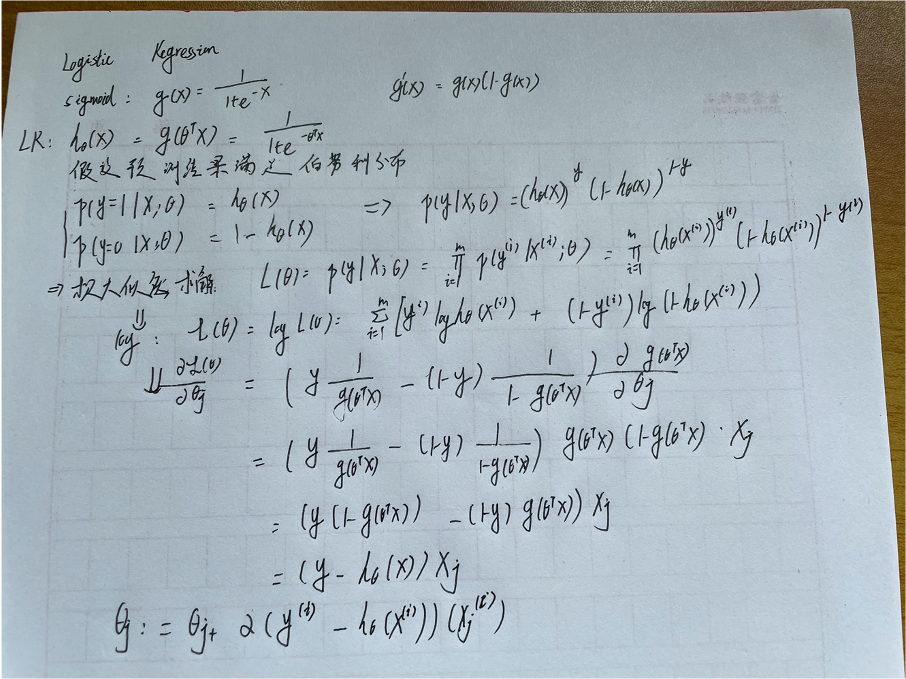 Logistic Regression
sigmoid: g(x) = 1/(1+e^{-x}) g'(x) = g(x)(1-g(x))
LR: h_θ(x) = g(θ^T x) = 1/(1+e^{-θ^T x})
假设预测结果满足伯努利分布
p(y=1|x;θ) = h_θ(x) => p(y|x;θ) = (h_θ(x))^y (1-h_θ(x))^{1-y}
p(y=0|x;θ) = 1-h_θ(x)
=> 极大似然求解 L(θ) = p(y|X;θ) = ∏_{i=1}^{m} p(y^{(i)}|x^{(i)};θ) = ∏_{i=1}^{m} (h_θ(x^{(i)}))^{y^{(i)}} (1-h_θ(x^{(i)}))^{1-y^{(i)}}
⇓ log: ℓ(θ) = log L(θ) = ∑_{i=1}^{m} [y^{(i)} log h_θ(x^{(i)}) + (1-y^{(i)}) log(1-h_θ(x^{(i)}))
⇓ ∂ℓ(θ)/∂θ_j = (y 1/g(θ^T x) - (1-y) 1/(1-g(θ^T x))) ∂g(θ^T x)/∂θ_j
= (y 1/g(θ^T x) - (1-y) 1/(1-g(θ^T x))) g(θ^T x)(1-g(θ^T x) · x_j
= (y(1-g(θ^T x)) - (1-y) g(θ^T x)) x_j
= (y - h_θ(x)) x_j
θ_j := θ_j + α(y^{(i)} - h_θ(x^{(i)}))(x_j^{(i)})